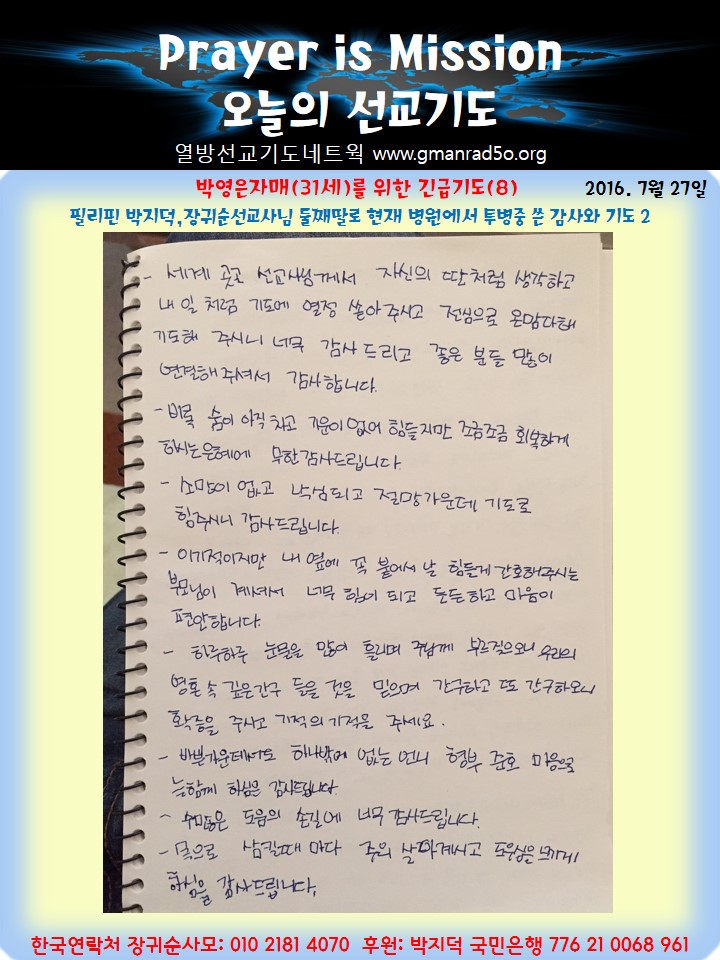 Prayer is Mission
오늘의 선교기도
열방선교기도네트웍 www.gmanrad5o.org
박영은자매(31세)를 위한 긴급기도(8) 2016. 7월 27일
필리핀 박지덕,장귀순선교사님 둘째딸로 현재 병원에서 투병중 쓴 감사와 기도 2
- 세계 곳곳 선교사님께서 자신의 딸처럼 생각하고
내 일 처럼 기도에 열정 쏟아주시고 전심으로 온맘다해
기도해 주시니 너무 감사드리고 좋은 분들 많이
연결해주셔서 감사합니다.
- 비록 숨이 아직 차고 기운이 없어 힘들지만 조금조금 회복하게
하시는은혜에 무한감사드립니다.
- 소망이 없고 낙심되고 절망가운데 기도로
힘주시니 감사드립니다.
- 이기적이지만 내 옆에 꼭 붙어서 날 힘들게 간호해주시는
부모님이 계셔서 너무 힘이 되고 든든하고 마음이
편안합니다.
- 하루하루 눈물을 많이 흘리며 주님께 부르짖으오니 우리의
영혼 속 깊은간구 들을 것을 믿으며 간구하고 또 간구하오니
확증을 주시고 기적의 기적을 주세요.
- 바쁜가운데에서도 하나밖에 없는 언니 형부 준호 마음으로
늘함께 하심은 감사드립니다
- 수많은 도움의 손길에 너무 감사드립니다.
- 목으로 삼킬때 마다 주의 살아계시고 도우심은 느끼게
하심을 감사드립니다.
한국연락처 장귀순사모: 010 2181 4070 후원: 박지덕 국민은행 776 21 0068 961